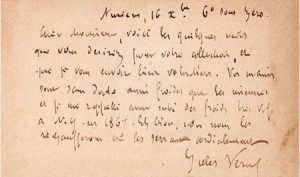 Amiens, 16 Xbre 6° sous zero.
Cher Monsieur, voici les quelques mots
que vous désirez pour votre collection, et
que je vous envoie bien volontiers. Vos mains
sont sans doute aussi froides que les miennes
et je me rappelle avoir subi des froids très vifs
à N.Y. en 1867. Eh bien, nous nous les
réchaufferons en les serrant cordialement
Jules Verne